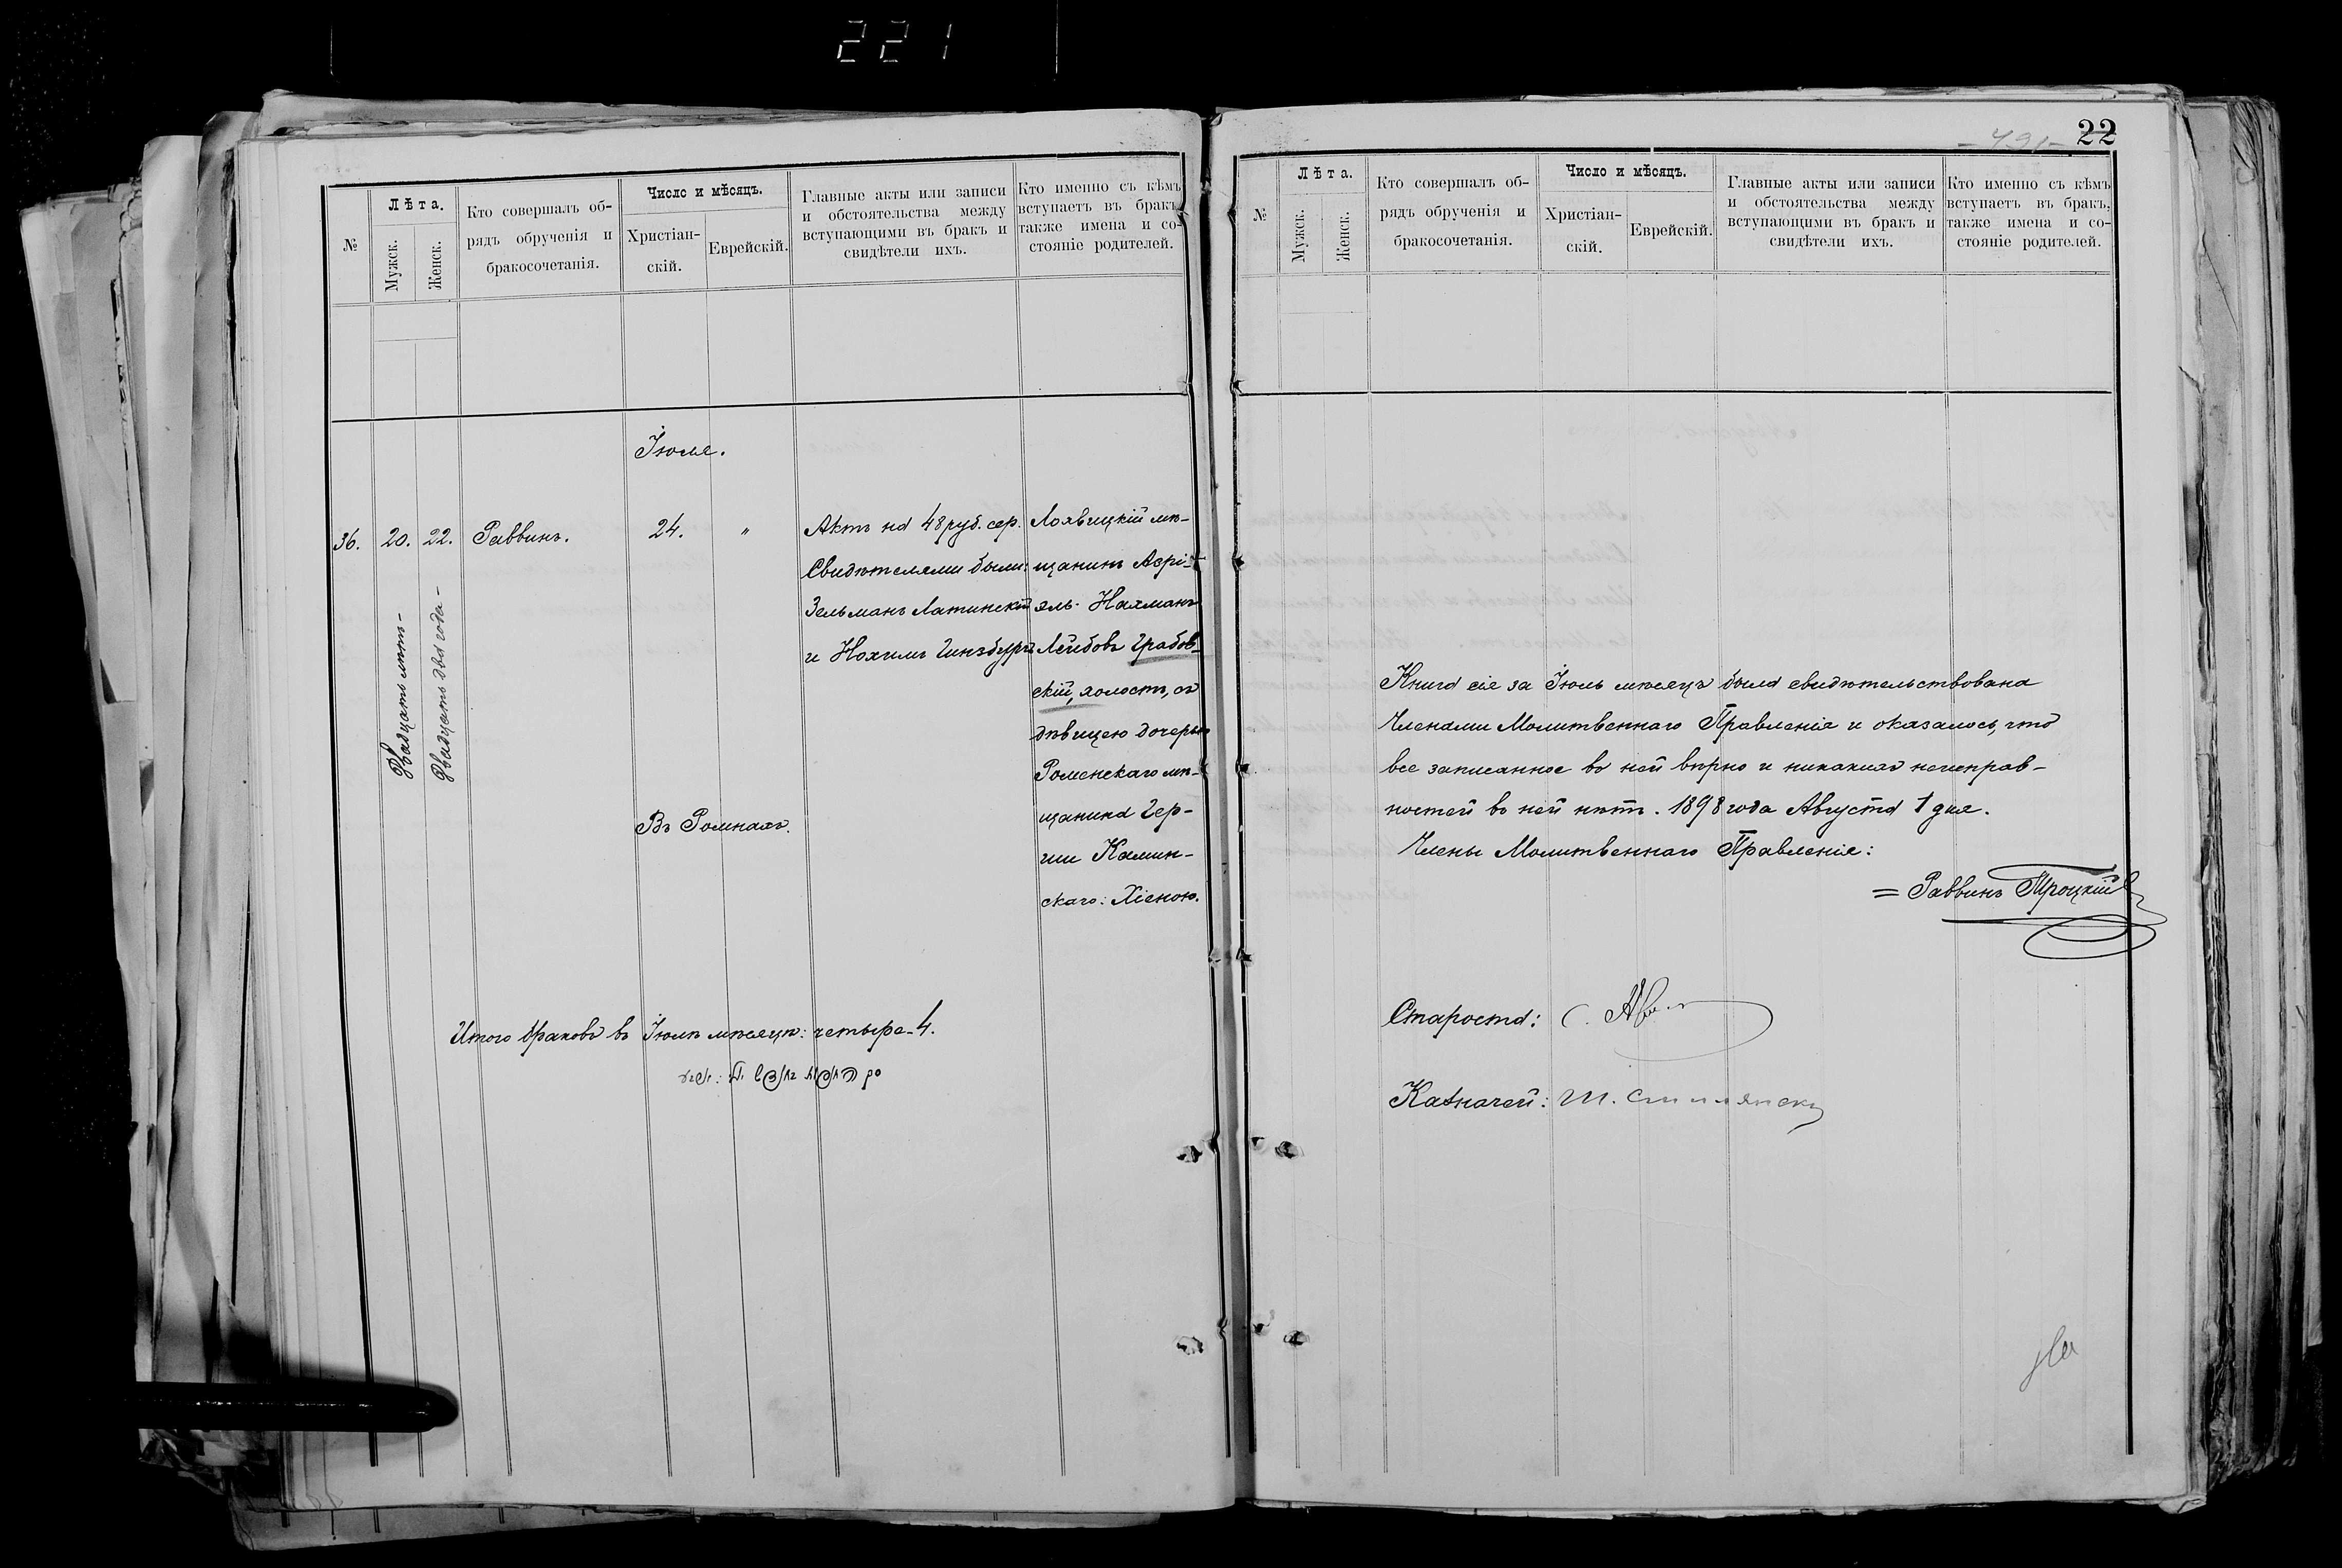 221
№
Лѣта.
Мужск.
Женск.
Кто совершалъ об-
рядъ обрученія и
бракосочетанія.
Число и мѣсяцъ.
Христіан-
скій.
Еврейскій.
Главные акты или записи
и обстоятельства между
вступающими въ бракъ и
свидѣтели ихъ.
Кто именно съ кѣмъ
вступаетъ въ бракъ,
также имена и со-
стояніе родителей.
Іюля.
36.
20.
22.
Двадцать лѣтъ-
Двадцать два года-
Раввинъ.
24.
"
Въ Ромнахъ.
Актъ на 48 руб. сер.
Свидѣтелями были:
Зельманъ Латинскій
и Нохимъ Гинзбургъ
Лохвицкій мѣ-
щанинъ Азрі-
яль-Нахманъ
Лейбовъ Грабов-
скій, холостъ, съ
дѣвицею дочерью
Роменскаго мѣ-
щанина Гер-
ши Камин-
скаго: Хіеною.
Итого браковъ въ Іюлѣ мѣсяцѣ: четыре-4.
22
№
Лѣта.
Мужск.
Женск.
Кто совершалъ об-
рядъ обрученія и
бракосочетанія.
Число и мѣсяцъ.
Христіан-
скій.
Еврейскій.
Главные акты или записи
и обстоятельства между
вступающими въ бракъ и
свидѣтели ихъ.
Кто именно съ кѣмъ
вступаетъ въ бракъ,
также имена и со-
стояніе родителей.
Книга сія за Іюль мѣсяцъ была свидѣтельствована
Членами Молитвеннаго Правленія и оказалось, что
все записанное въ ней вѣрно и никакихъ неисправ-
ностей въ ней нѣтъ. 1898 года Августа 1 дня.
Члены Молитвеннаго Правленія:
= Раввинъ Троцкій
Староста:
Казначей: Ш.